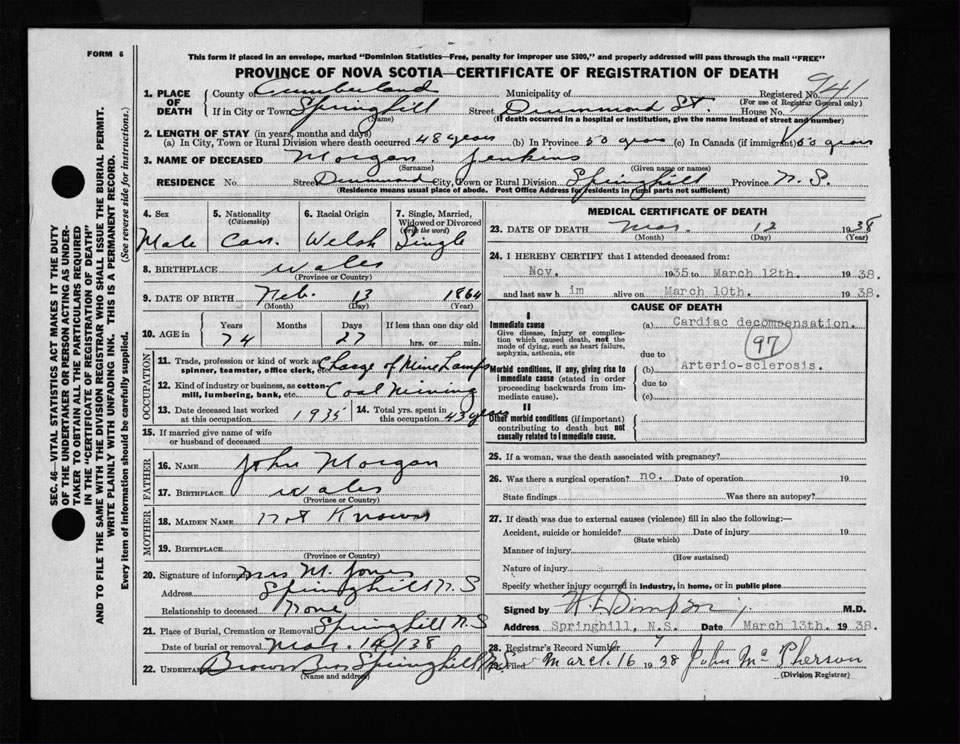 FORM 6
This form if placed in an envelope, marked "Dominion Statistics—Free, penalty for improper use $300," and properly addressed will pass through the mail "FREE"
PROVINCE OF NOVA SCOTIA—CERTIFICATE OF REGISTRATION OF DEATH
94
1. PLACE OF DEATH County of Cumberland Municipality of Registered No.
(For use of Registrar General only)
If in City or Town Springhill Street Drummond St. House No.
(Name) (If death occurred in a hospital or institution, give the name instead of street and number)
2. LENGTH OF STAY (in years, months and days)
(a) In City, Town or Rural Division where death occurred 48 years (b) In Province 50 years (c) In Canada (if immigrant) 50 years
3. NAME OF DECEASED Morgan, Jenkins
(Surname) (Given name or names)
RESIDENCE No. Street Drummond City, Town or Rural Division Springhill Province N. S.
(Residence means usual place of abode. Post Office Address for residents in rural parts not sufficient)
4. Sex 5. Nationality (Citizenship) 6. Racial Origin 7. Single, Married, Widowed or Divorced (write the word)
Male Can. Welsh Single
8. BIRTHPLACE Wales
(Province or Country)
9. DATE OF BIRTH Feb. 13 1864
(Month) (Day) (Year)
10. AGE in Years Months Days If less than one day old
74 27 hrs. or min.
OCCUPATION
11. Trade, profession or kind of work as spinner, teamster, office clerk, etc. Charge of Mine Lamps
12. Kind of industry or business, as cotton-mill, lumbering, bank, etc. Coal Mining
13. Date deceased last worked at this occupation 1935 14. Total yrs. spent in this occupation 43 years
15. If married give name of wife or husband of deceased
FATHER
16. NAME John Morgan
17. BIRTHPLACE Wales
(Province or Country)
MOTHER
18. MAIDEN NAME Not Known
19. BIRTHPLACE
(Province or Country)
20. Signature of informant Mrs M. Jones
Address Springhill N. S
Relationship to deceased None
21. Place of Burial, Cremation or Removal Springhill N. S
Date of burial or removal Mar. 14/38
22. UNDERTAKER Brown Bros Springhill N. S.
(Name and address)
MEDICAL CERTIFICATE OF DEATH
23. DATE OF DEATH Mar. 12 1938
(Month) (Day) (Year)
24. I HEREBY CERTIFY that I attended deceased from:
Nov. 1935 to March 12th. 1938.
and last saw h im alive on March 10th. 1938.
CAUSE OF DEATH
I
Immediate cause
Give disease, injury or complication which caused death, not the mode of dying, such as heart failure, asphyxia, asthenia, etc
(a) Cardiac decompensation.
97
due to
Morbid conditions, if any, giving rise to immediate cause (stated in order proceeding backwards from immediate cause).
(b) Arterio-sclerosis.
due to
(c)
II
Other morbid conditions (if important) contributing to death but not causally related to immediate cause.
25. If a woman, was the death associated with pregnancy?
26. Was there a surgical operation? no. Date of operation 19
State findings Was there an autopsy?
27. If death was due to external causes (violence) fill in also the following:—
Accident, suicide or homicide? Date of injury 19
(State which)
Manner of injury
(How sustained)
Nature of injury
Specify whether injury occurred in industry, in home, or in public place
Signed by M.D.
Address Springhill, N.S. Date March 13th. 1938.
28. Registrar's Record Number
Filed March 16 1938 John McPherson
(Division Registrar)
SEC. 46—VITAL STATISTICS ACT MAKES IT THE DUTY
OF THE UNDERTAKER OR PERSON ACTING AS UNDER-
TAKER TO OBTAIN ALL THE PARTICULARS REQUIRED
IN THE "CERTIFICATE OF REGISTRATION OF DEATH"
AND TO FILE THE SAME WITH THE DIVISION REGISTRAR WHO SHALL ISSUE THE BURIAL PERMIT.
WRITE PLAINLY WITH UNFADING INK. THIS IS A PERMANENT RECORD.
Every item of information should be carefully supplied. (See reverse side for instructions.)